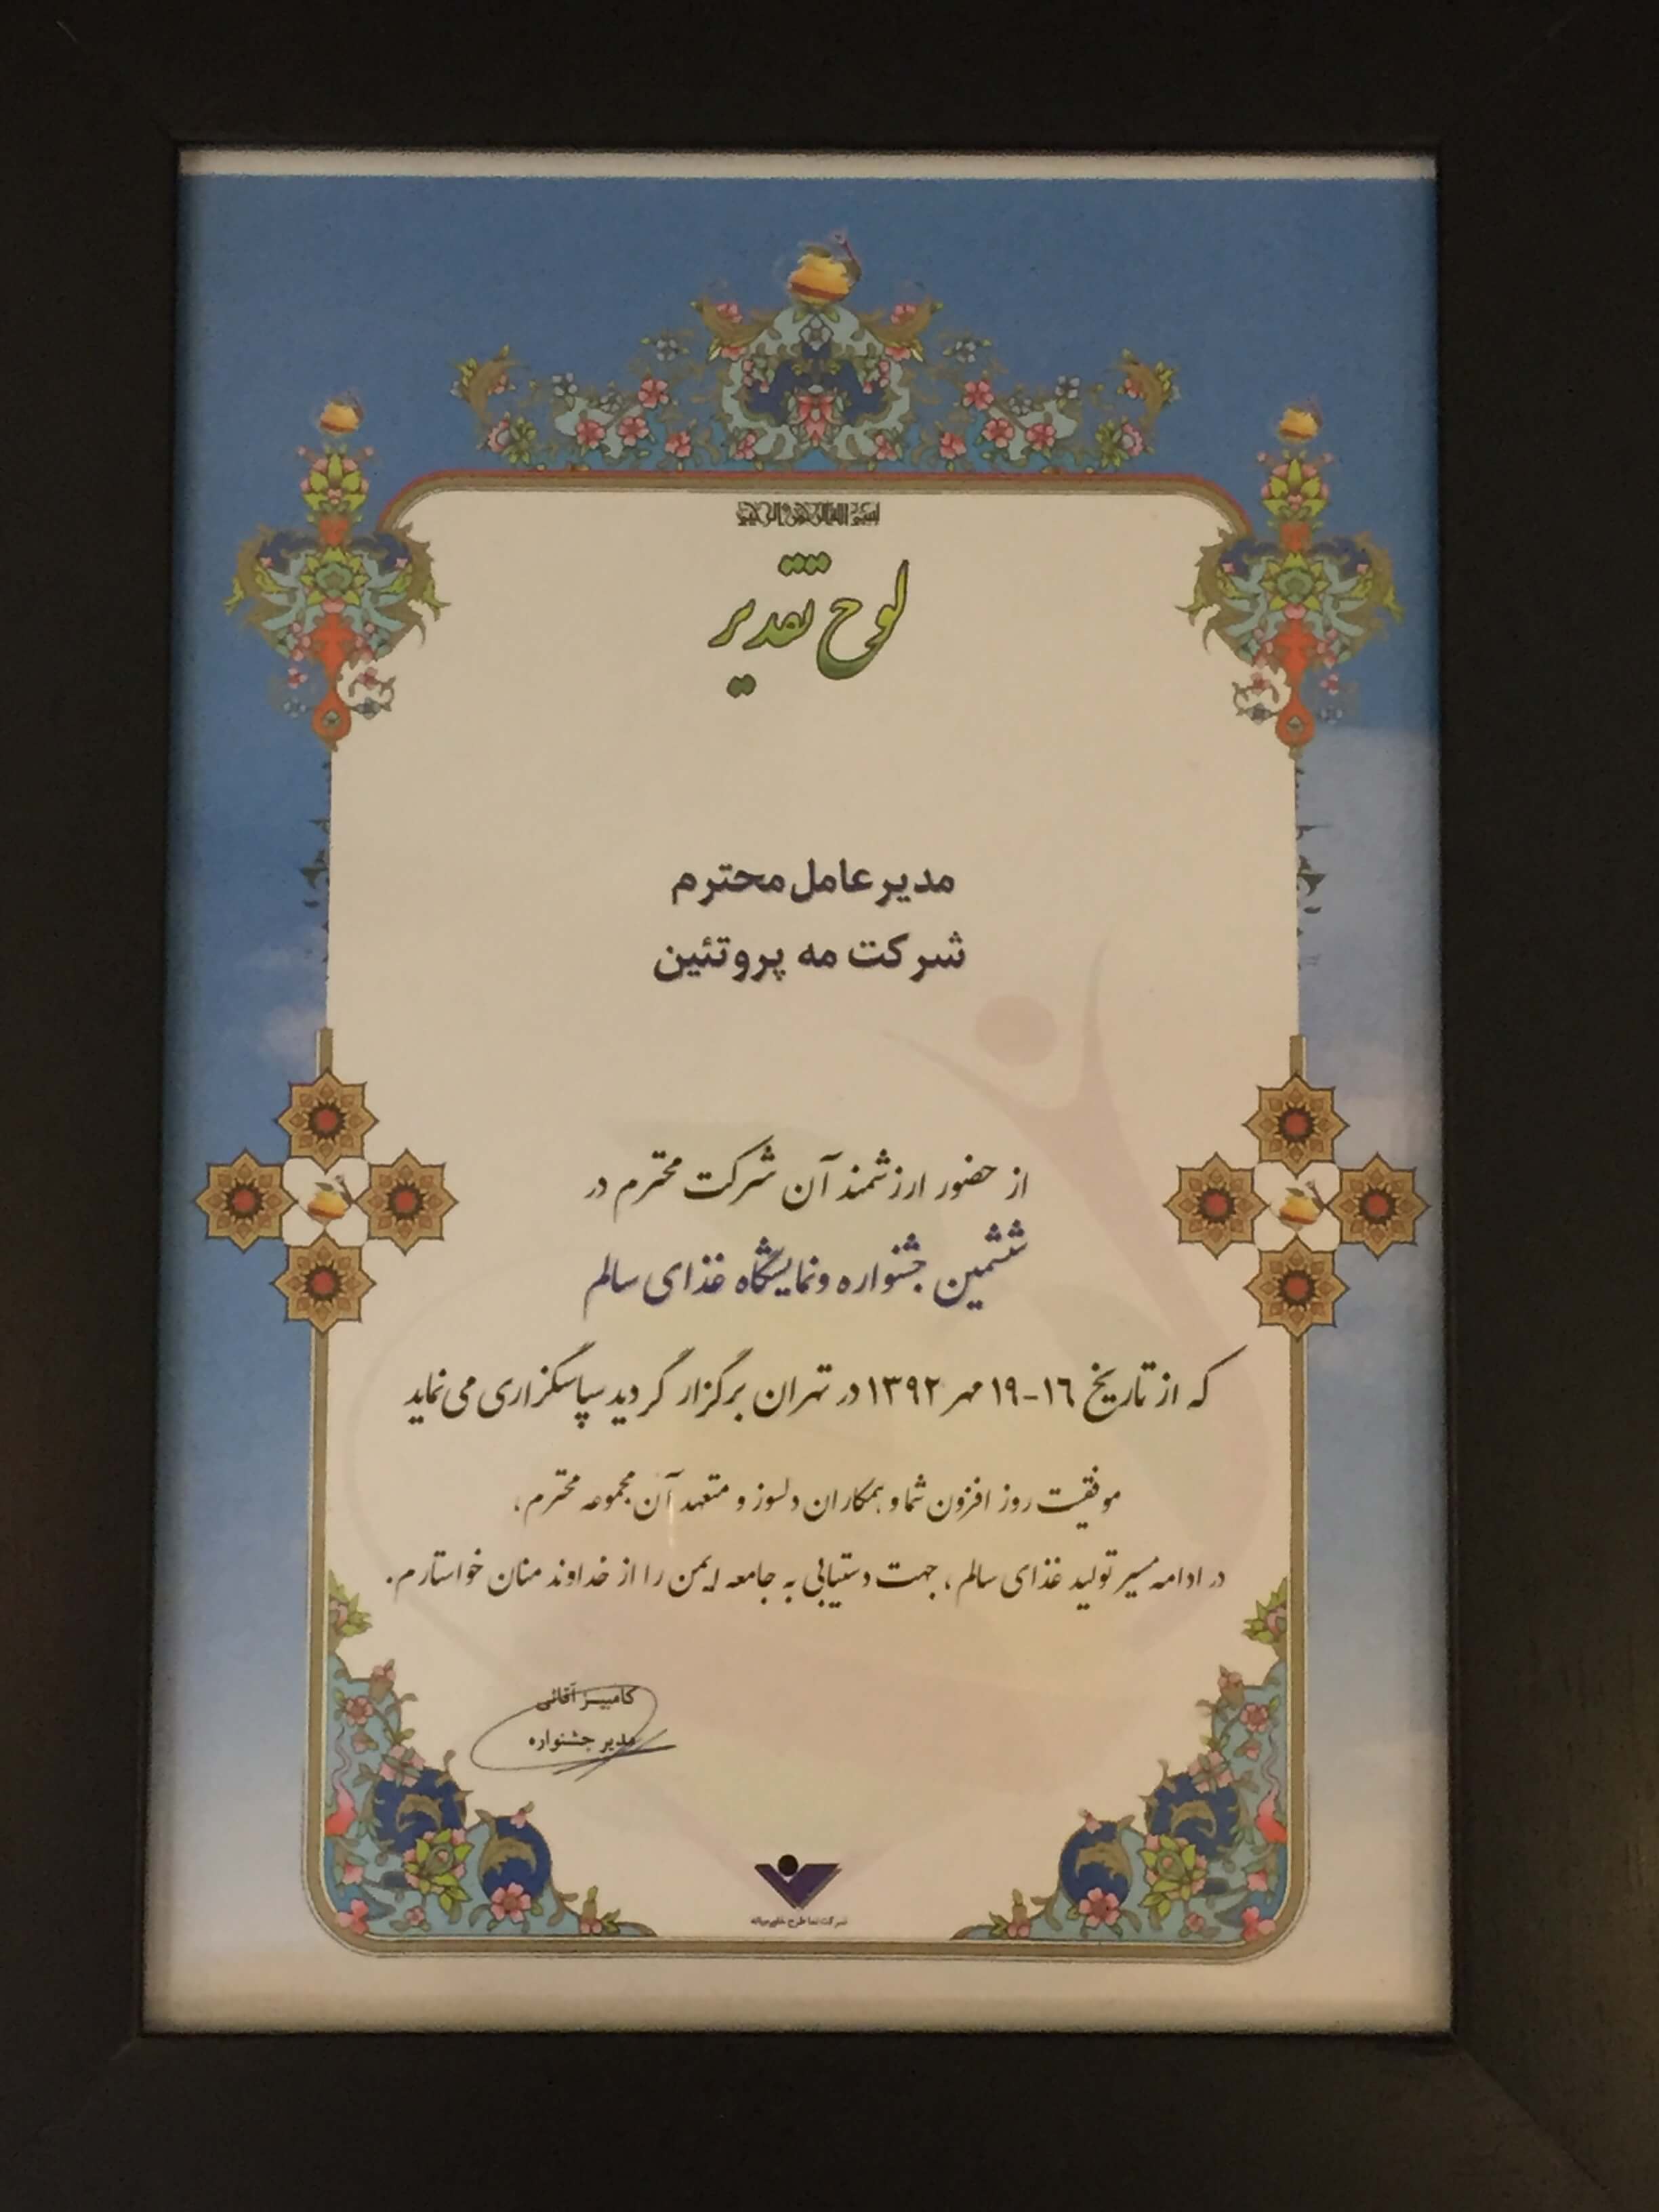 بسم الله الرحمن الرحیم
لوح تقدیر
مدیر عامل محترم
شرکت مه پروتئین
از حضور ارزشمند آن شرکت محترم در
ششمین جشنواره و نمایشگاه غذای سالم
که از تاریخ ۱۶-۱۹ مهر ۱۳۹۲ در تهران برگزار گردید سپاسگزاری می نماید
موفقیت روز افزون شما و همکاران دلسوز و متعهد آن مجموعه محترم،
در ادامه مسیر تولید غذای سالم، جهت دستیابی به جامعه ایمن را از خداوند منان خواستارم.
کامبیز آقائی
مدیر جشنواره
شرکت نما طرح خاورمیانه